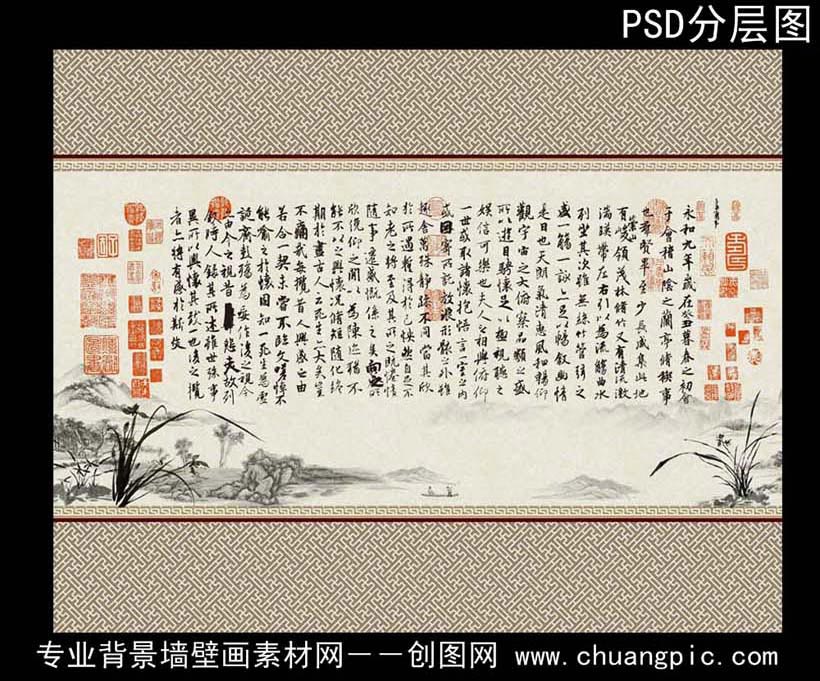 PSD分层图
永和九年歲在癸丑暮春之初會
于會稽山陰之蘭亭脩稧事
也羣賢畢至少長咸集此地
有崇山峻領茂林脩竹又有清流激
湍暎帶左右引以為流觴曲水
列坐其次雖無絲竹管弦之
盛一觴一詠亦足以暢叙幽情
是日也天朗氣清惠風和暢仰
觀宇宙之大俯察品類之盛
所以遊目騁懷足以極視聽之
娛信可樂也夫人之相與俯仰
一世或取諸懷抱悟言一室之內
或因寄所託放浪形骸之外雖
趣舍萬殊靜躁不同當其欣
於所遇暫得於己怏然自足不
知老之將至及其所之既惓情
隨事遷感慨係之矣向之所
欣俛仰之閒以為陳迹猶不
能不以之興懷況脩短隨化終
期於盡古人云死生亦大矣豈
不痛哉每攬昔人興感之由
若合一契未嘗不臨文嗟悼不
能喻之於懷固知一死生為虛
誕齊彭殤為妄作後之視今
亦由今之視昔悲夫故列
敘時人錄其所述雖世殊事
異所以興懷其致一也後之攬
者亦將有感於斯文
专业背景墙壁画素材网——创图网 www.chuangpic.com